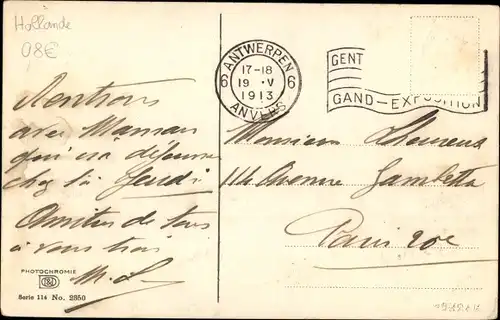 Hollande
08€
ANTWERPEN
17-18
19 V
1913
6 6
ANVERS
GENT
GAND-EXPOSITION
Rentrons
avec Maman
qui va déjeuner
chez toi Jeudi
Amitiés de tous
à vous trois
M. L.
Monsieur
114 Avenue Gambetta
Paris 20e
PHOTOCHROMIE
Serie 114 No. 2850